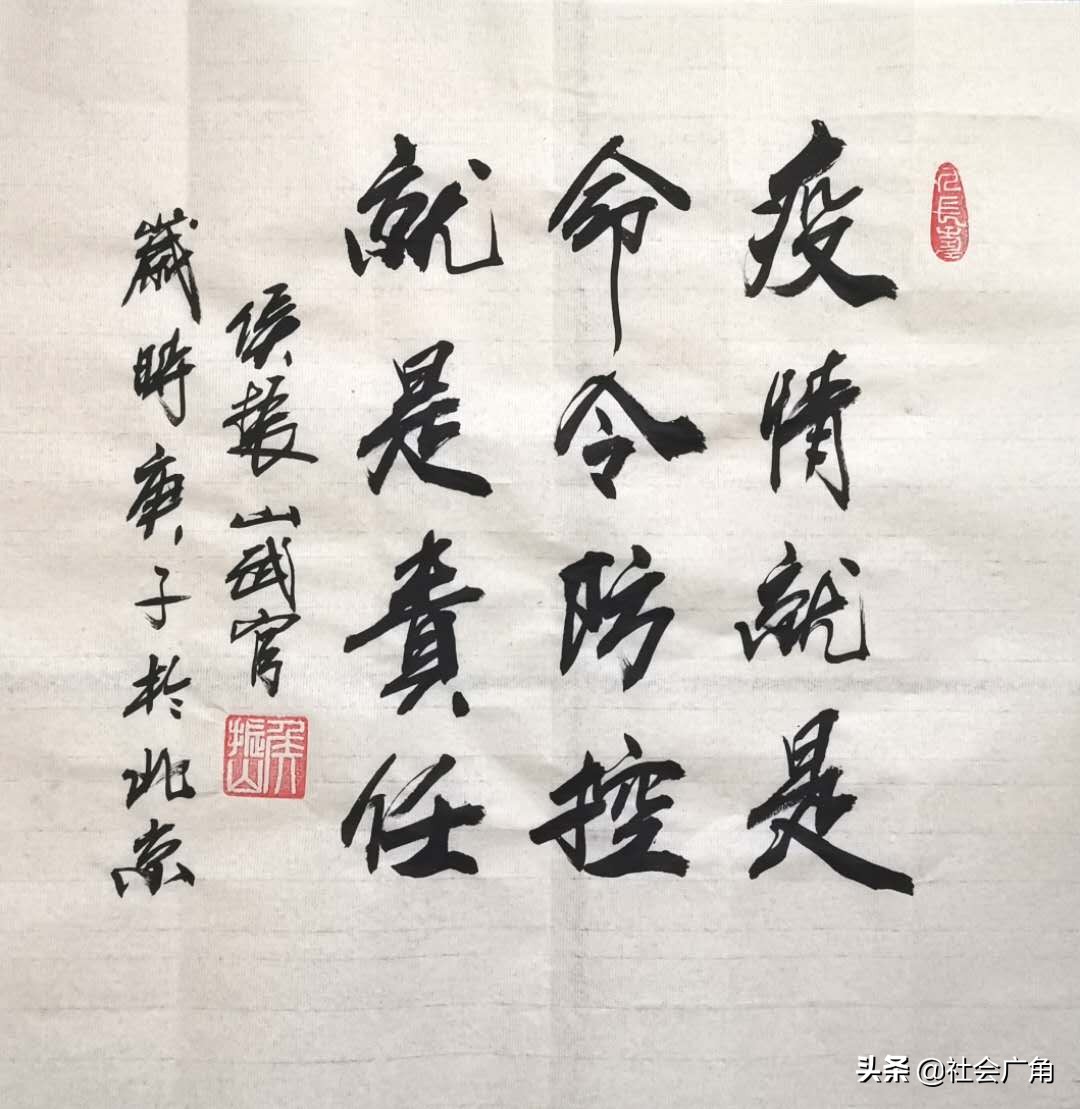 疫情就是
命令防控
就是責任
侯振山武官
歲時庚子於北京
侯振山
头条 @社会广角